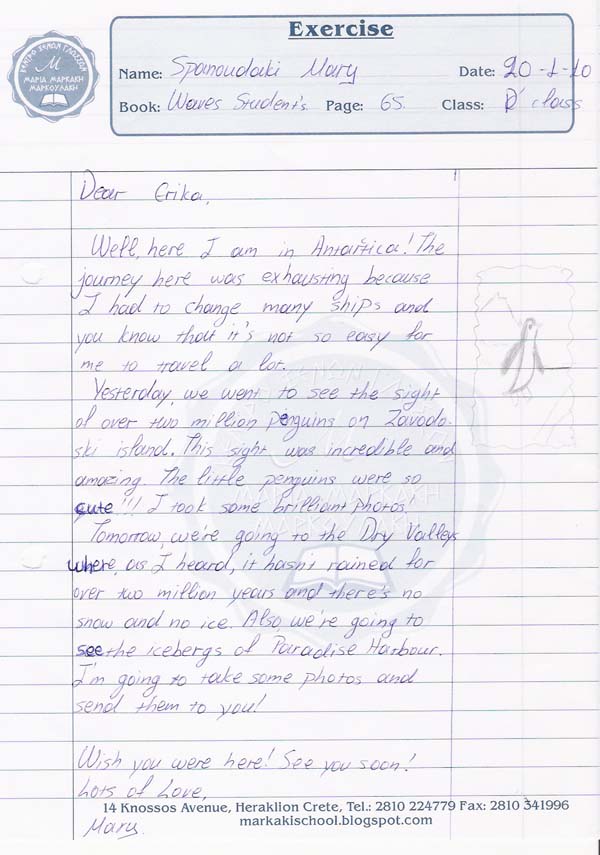 Exercise
ΚΕΝΤΡΟ ΞΕΝΩΝ ΓΛΩΣΣΩΝ
Μ
ΜΑΡΙΑ ΜΑΡΚΑΚΗ
ΜΑΡΚΟΥΛΑΚΗ
Name: Spanoudaki Mary Date: 20-1-10
Book: Waves Student's. Page: 65. Class: D' class
Dear Erika,
Well, here I am in Antartica! The
journey here was exhausting because
I had to change many ships and
you know that it's not so easy for
me to travel a lot.
Yesterday, we went to see the sight
of over two million penguins on Zavodo-
ski island. This sight was incredible and
amazing. The little penguins were so
cute!!! I took some brilliant photos!
Tomorrow, we're going to the Dry Valleys
where, as I heard, it hasn't rained for
over two million years and there's no
snow and no ice. Also, we're going to
see the icebergs of Paradise Harbour.
I'm going to take some photos and
send them to you!
Wish you were here! See you soon!
Lots of Love,
14 Knossos Avenue, Heraklion Crete, Tel.: 2810 224779 Fax: 2810 341996
markakischool.blogspot.com
Mary.